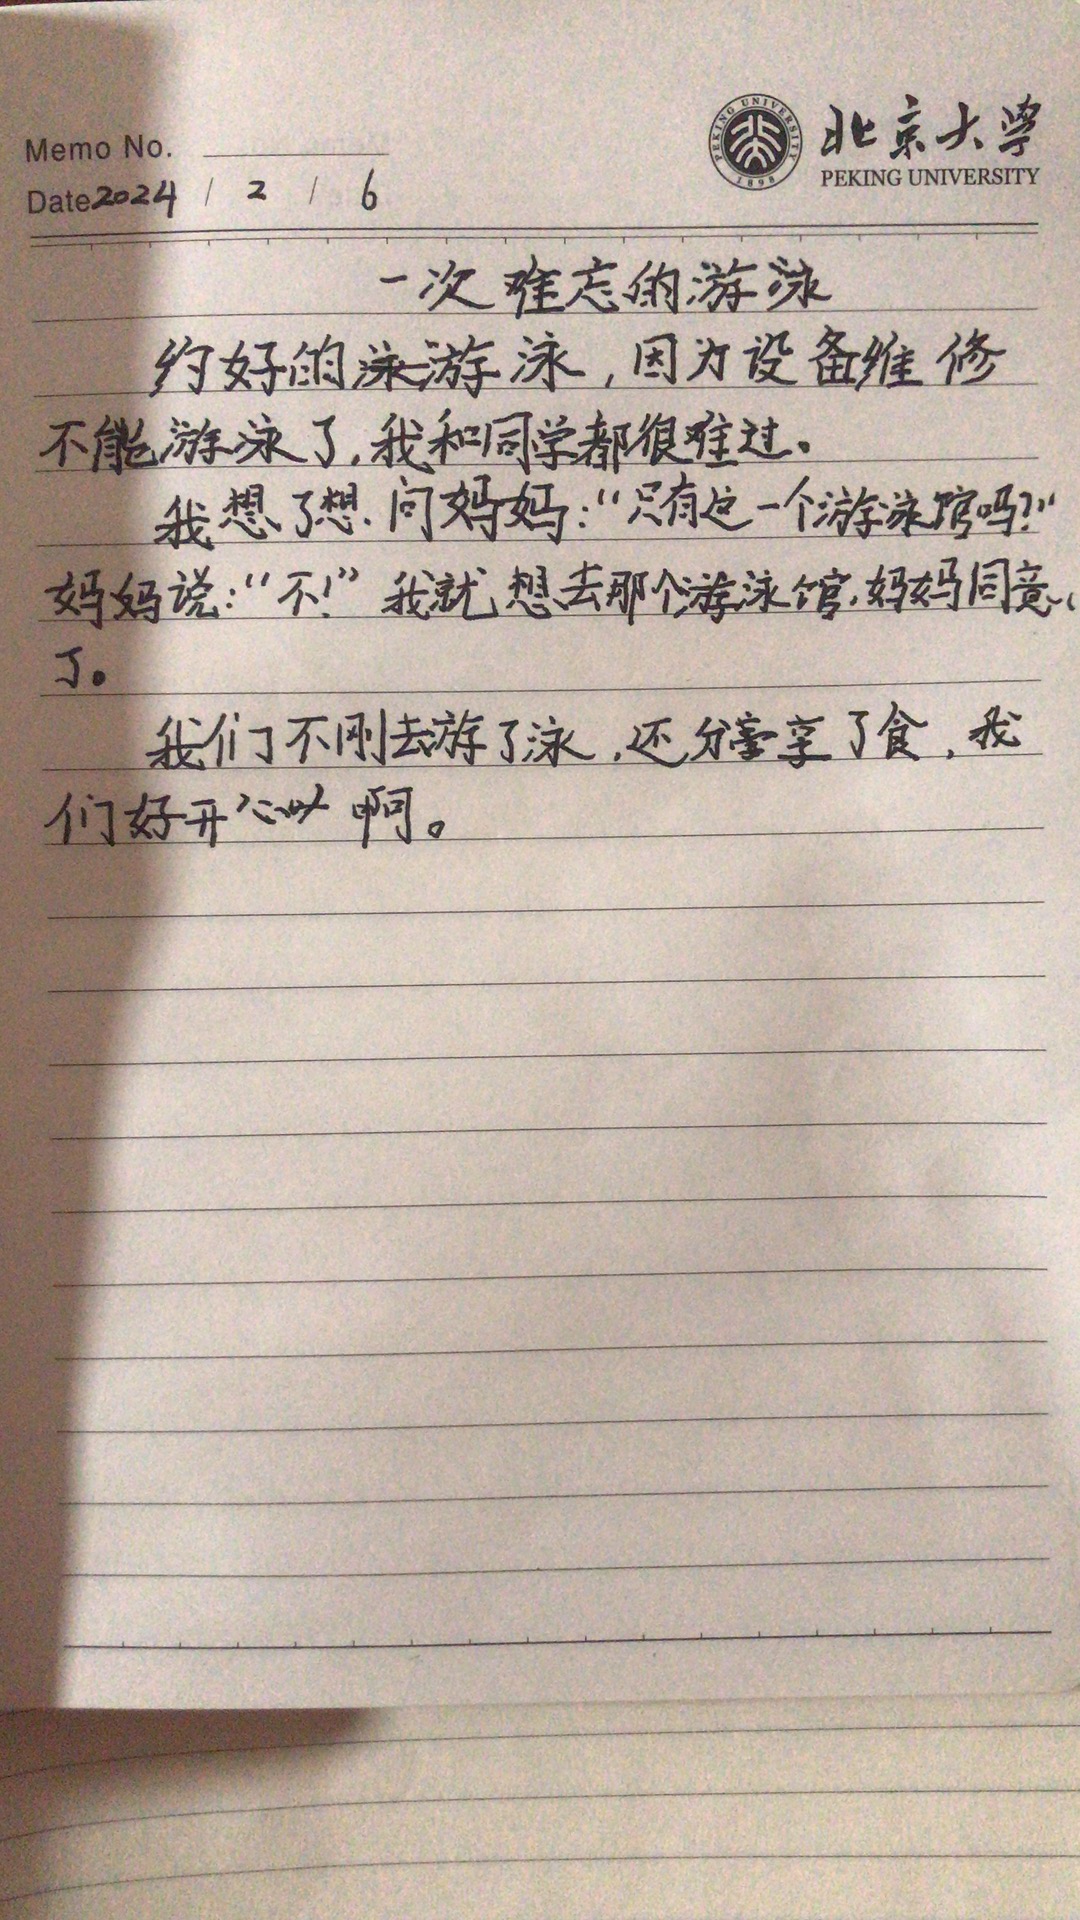 Memo No.
Date 2024 / 2 / 6
PEKING UNIVERSITY
1898
北京大学
PEKING UNIVERSITY
一次难忘的游泳
约好的泳游泳，因为设备维修
不能游泳了，我和同学都很难过。
我想了想，问妈妈：“只有这一个游泳馆吗？”
妈妈说：“不！”我就想去那个游泳馆，妈妈同意
了。
我们不刚去游了泳，还分享了食，我
们好开心啊。